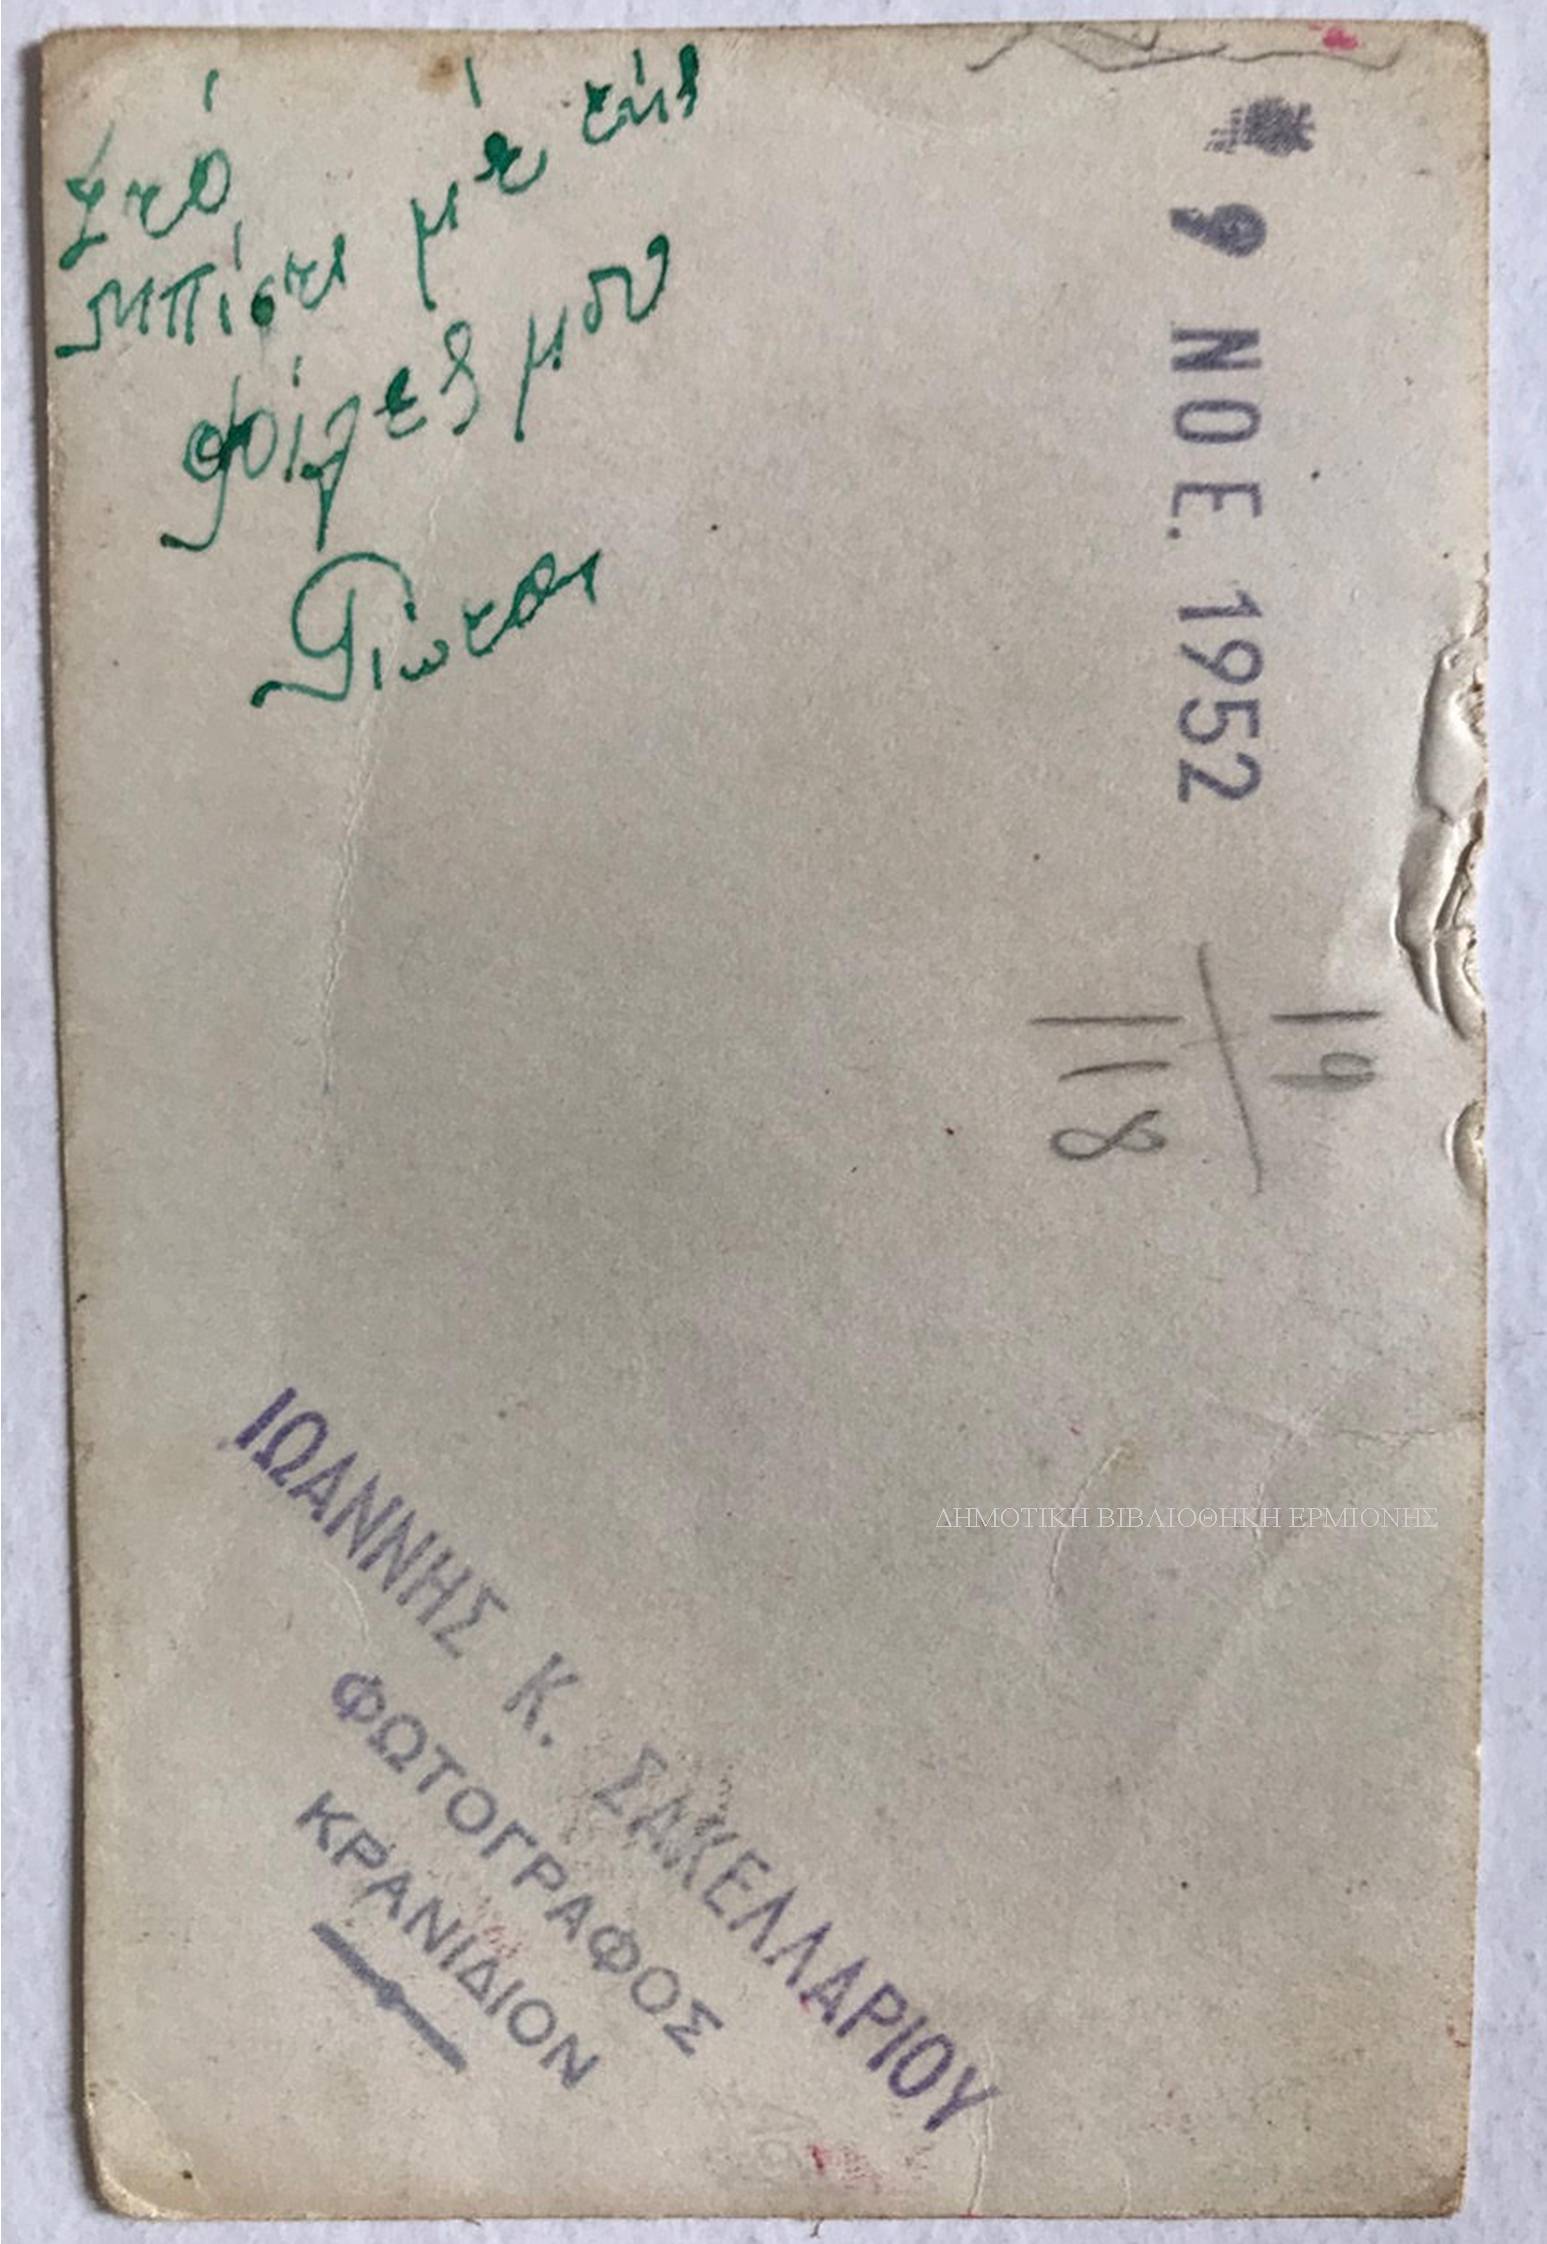 Στό
Μπίστι μέ τίς
φίλες μου
Γιώτα
9 ΝΟΕ. 1952
19
118
ΔΗΜΟΤΙΚΗ ΒΙΒΛΙΟΘΗΚΗ ΕΡΜΙΟΝΗΣ
ΙΩΑΝΝΗΣ Κ. ΣΑΚΕΛΛΑΡΙΟΥ
ΦΩΤΟΓΡΑΦΟΣ
ΚΡΑΝΙΔΙΟΝ